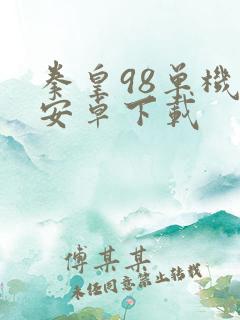 拳皇98单機
安卓下載
傅某某
未经同意禁止转载